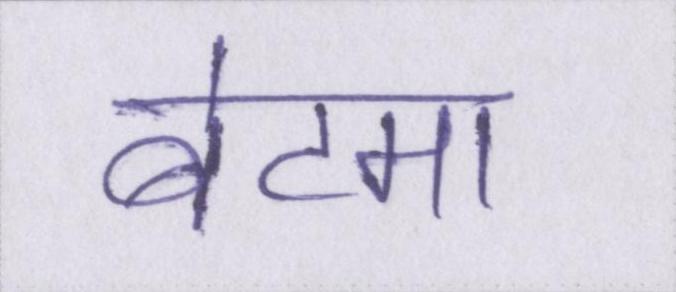 बेटमा